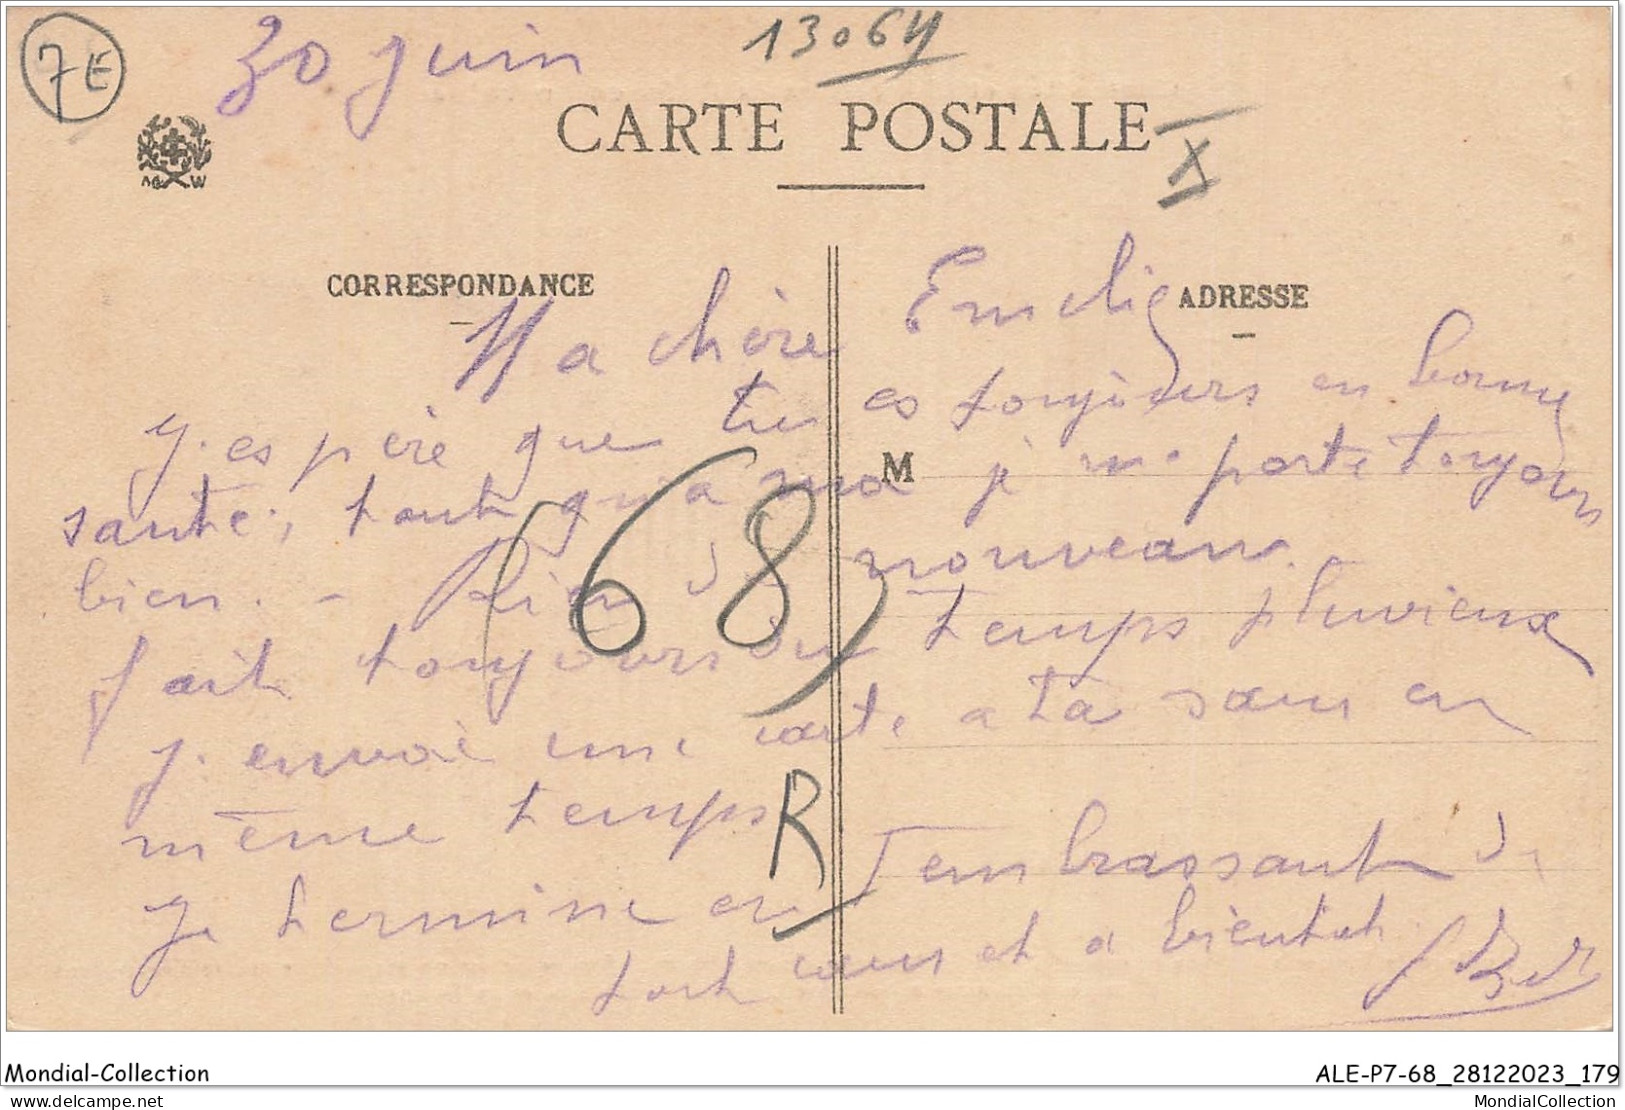 7E
30 juin
13064
CARTE POSTALE
X
AG W
CORRESPONDANCE
ADRESSE
Ma chère Emelie
j. espère que tu es toujours en bonne
M
santé, tout qu'a moi je me porte toujours
bien. - Rien de nouveau.
(68)
fait toujours du temps pluvieux
j. envoie une carte a ta sœur en
même temps
R
Je termine en t'embrassant de
tout cœur et a bientot.
Mondial-Collection
ALE-P7-68_28122023_179
www.delcampe.net
MondialCollection